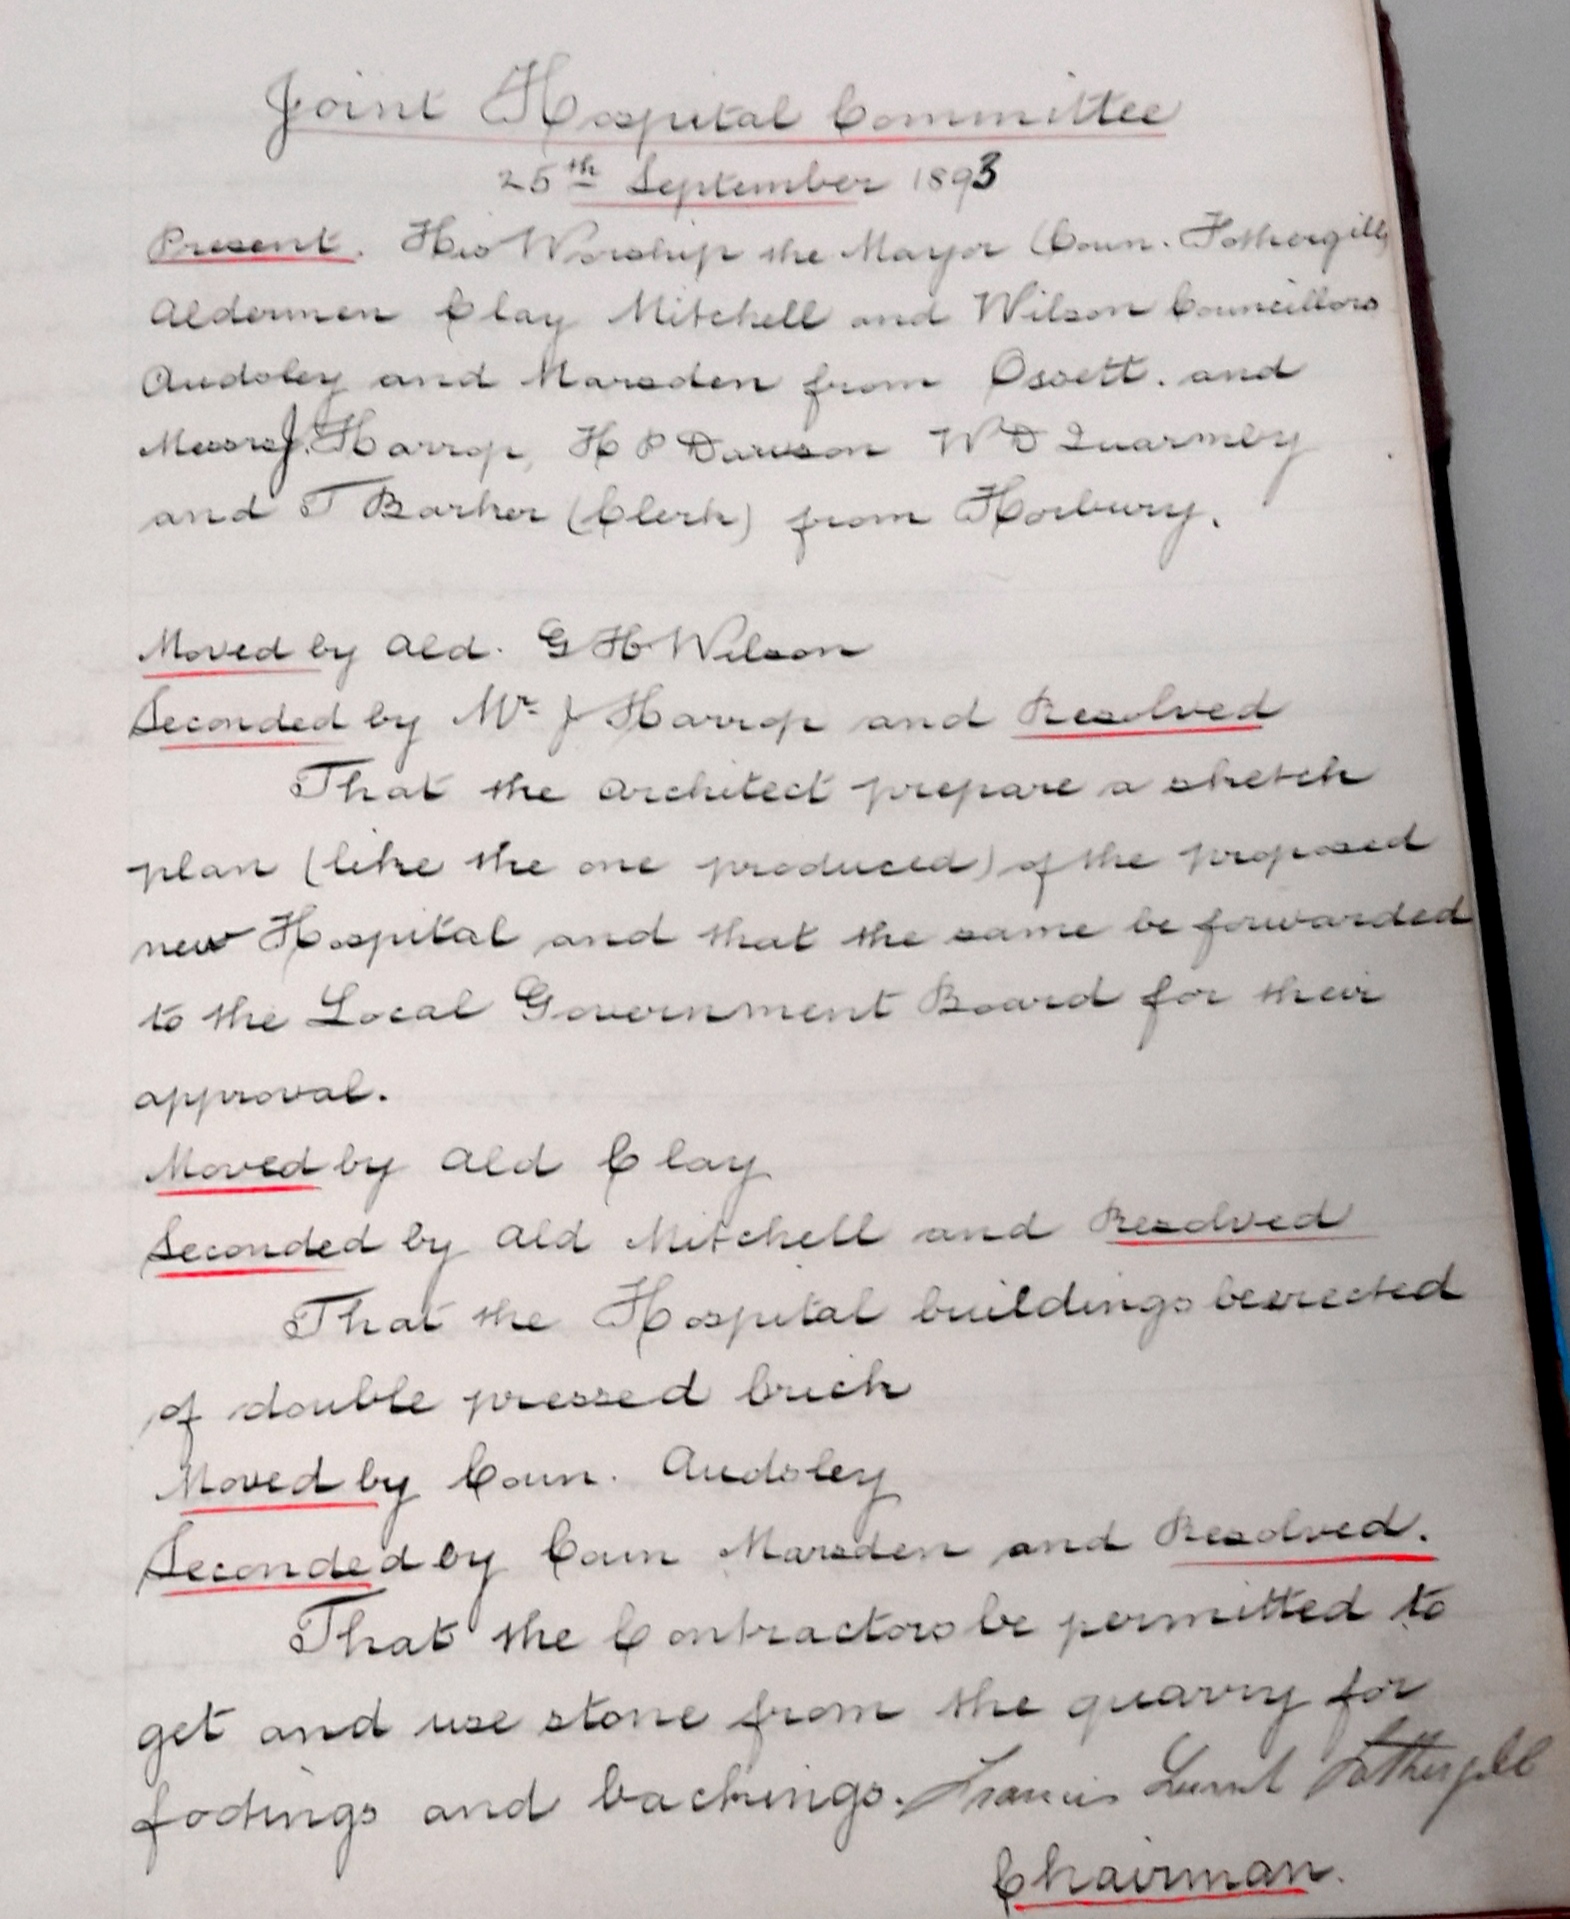 Joint Hospital Committee
25th September 1893
Present. His Worship the Mayor (Coun. Fothergill)
Aldermen Clay Mitchell and Wilson Councillors
Audsley and Marsden from Ossett. and
Messrs J. Harrop, H P Dawson W D Quarmby
and T Barker (Clerk) from Horbury.
Moved by Ald. G H Wilson
Seconded by Mr J Harrop and Resolved
That the Architect prepare a sketch
plan (like the one produced) of the proposed
new Hospital and that the same be forwarded
to the Local Government Board for their
approval.
Moved by Ald Clay
Seconded by Ald Mitchell and Resolved
That the Hospital buildings be erected
of double pressed brick
Moved by Coun. Audsley
Seconded by Coun Marsden and Resolved.
That the Contractors be permitted to
get and use stone from the quarry for
footings and backings. Francis Fothergill
Chairman.